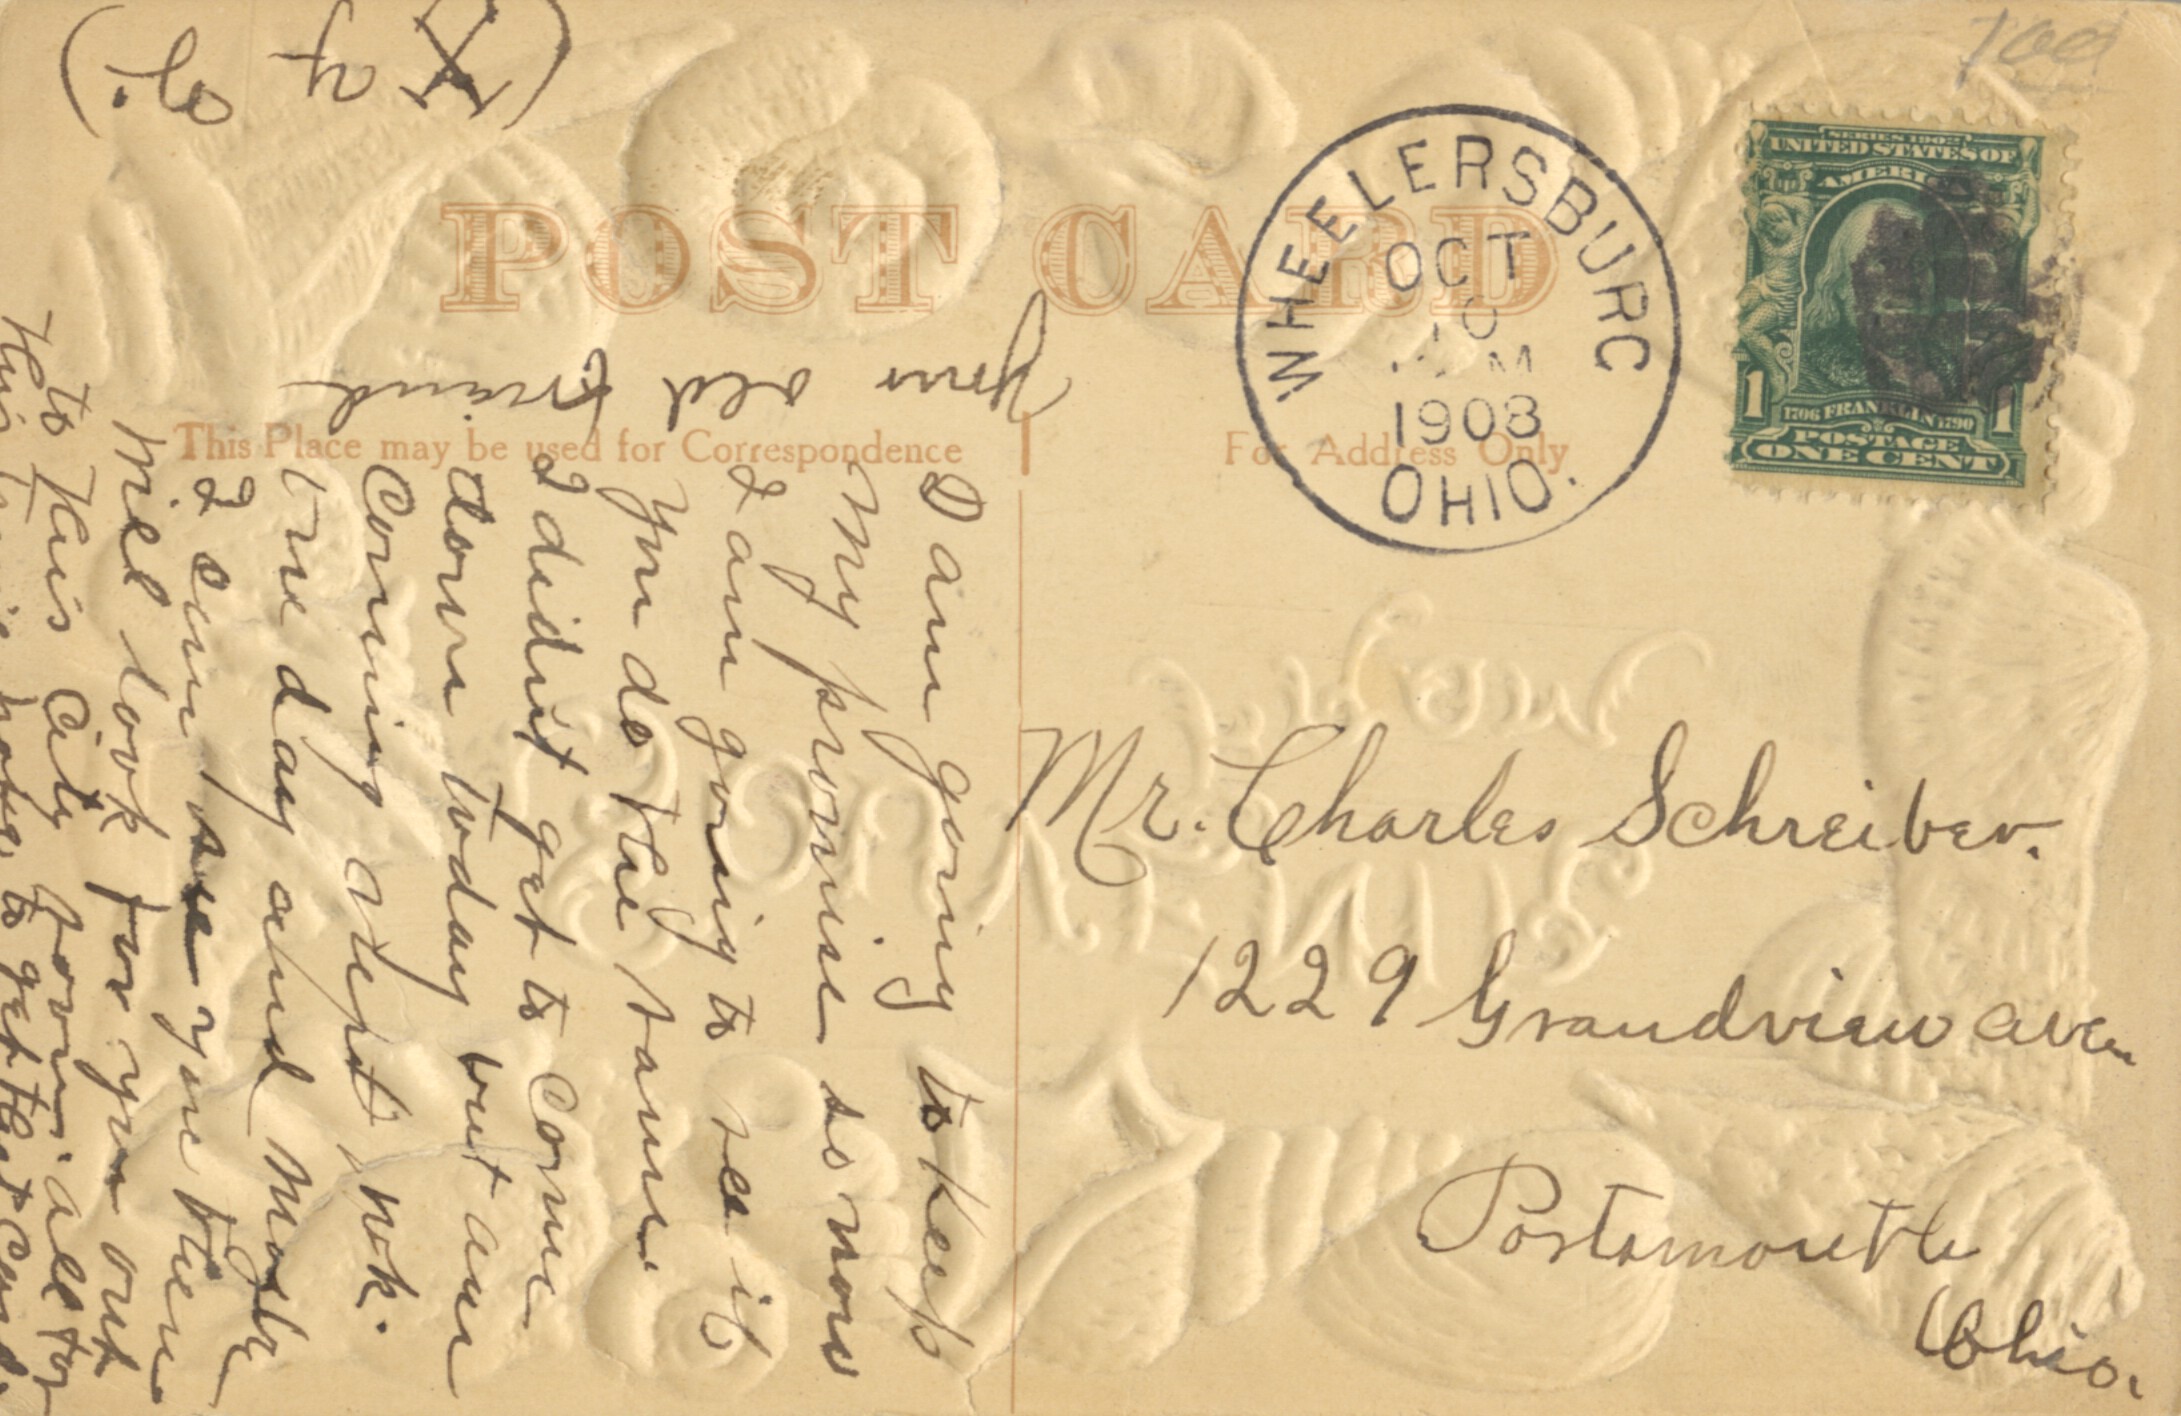 POST CARD
This Place may be used for Correspondence
For Address Only
WHEELERSBURG
OCT
10
M
1908
OHIO.
SERIES 1902
UNITED STATES OF
AMERICA
1 1
1706 FRANKLIN 1790
POSTAGE
ONE CENT
Mr. Charles Schreiber.
1229 Grandview ave.
Portsmouth
Ohio.
I am going to keep
My promise so now
I am going to see if
you do the same
I didn't get to come
down today but am
Coming next wk.
one day and maybe
I can see you then
Will look for you out
to this City
this
to get that Card.
your old Friend